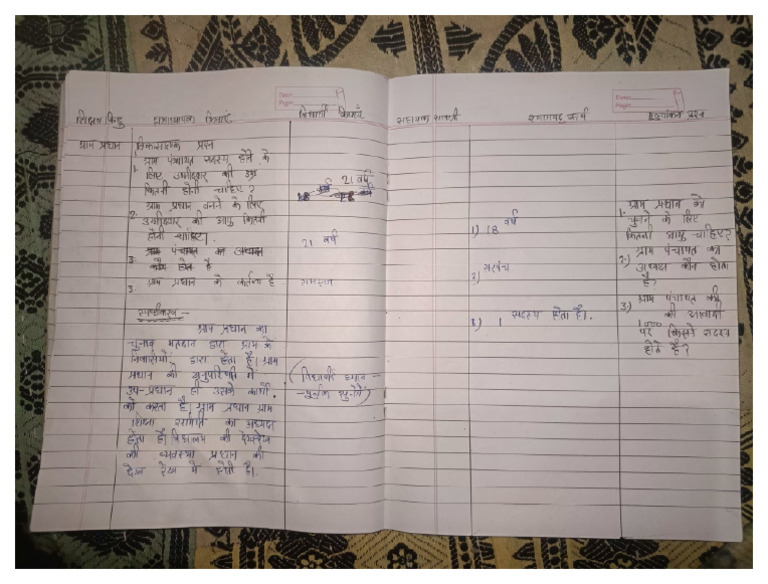 शिक्षण बिन्दु छात्राध्यापक क्रियाएं विद्यार्थी क्रियाएं सहायक सामग्री श्यामपट्ट कार्य मूल्यांकन प्रश्न
ग्राम प्रधान
विकासात्मक प्रश्न
1. ग्राम पंचायत सदस्य होने के
लिए उम्मीदवार की उम्र
कितनी होनी चाहिए?
2. ग्राम प्रधान बनने के लिए
उम्मीदवार की आयु कितनी
होनी चाहिए।
3. ग्राम पंचायत का अध्यक्ष
कौन होता है
3. ग्राम प्रधान के कर्तव्य है
स्पष्टीकरण –
ग्राम प्रधान का
चुनाव मतदान द्वारा ग्राम के
निवासियों द्वारा होता है। ग्राम
प्रधान की अनुपस्थिति में
उप-प्रधान ही उसके कार्यों
को करता है। ग्राम प्रधान ग्राम
शिक्षा समिति का अध्यक्ष
होता है। विद्यालय की देखरेख
की व्यवस्था प्रधान की
देख रेख में होती है।
21 वर्ष
21 वर्ष
(विद्यार्थी ध्यान –
–पूर्वक सुनेंगे)
1) 18 वर्ष
2) सरपंच
3) 1 सदस्य होता है।
1. ग्राम प्रधान को
चुनने के लिए
कितनी आयु चाहिए?
2.) ग्राम पंचायत का
अध्यक्ष कौन होता
है?
3) ग्राम पंचायत की
1000 की आबादी
पर कितने सदस्य
होते है?